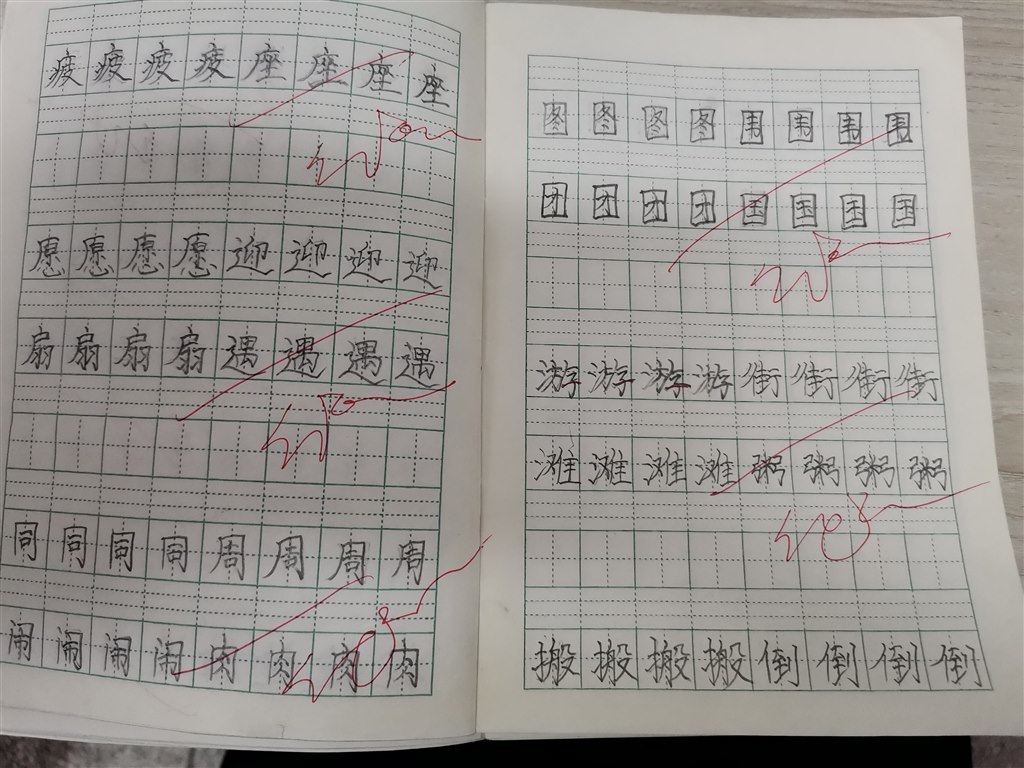 疲疲疲疲座座座座
愿愿愿愿迎迎迎迎
扇扇扇扇遇遇遇遇
同同同同周周周周
闹闹闹闹肉肉肉肉
图图图图围围围围
团团团团国国国国
游游游游街街街街
滩滩滩滩粥粥粥粥
搬搬搬搬倒倒倒倒